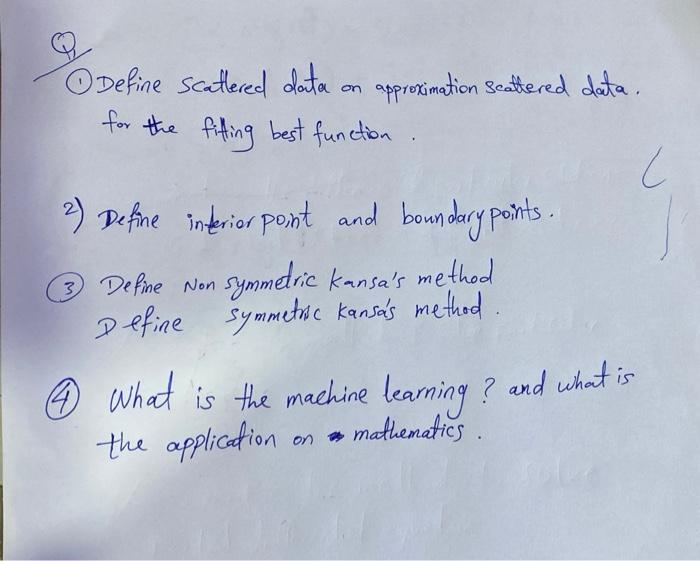 Q
① Define scattered data on approximation scattered data.
for the fitting best function.
2) Define interior point and boundary points.
③ Define Non symmetric kansa's method
Define symmetric kansa's method.
④ What is the machine learning? and what is
the application on mathematics.